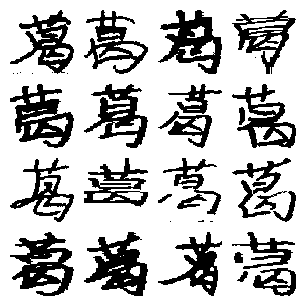 葛葛葛葛
葛葛葛葛
葛葛葛葛
葛葛葛葛